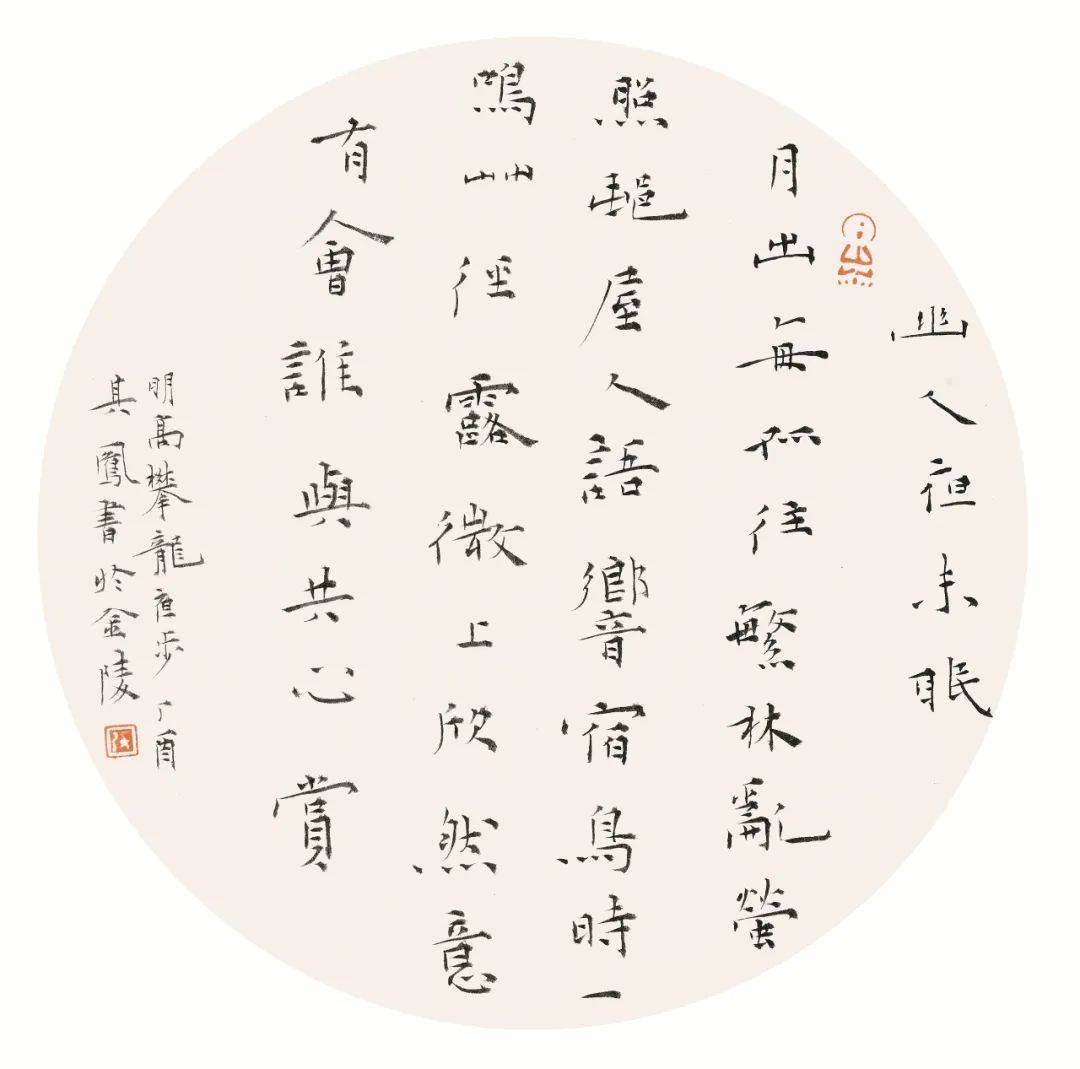 幽人夜未眠
月出每孤往繁林亂螢
照邨屋人語響宿鳥時一
鳴艸徑露微上欣然意
有會誰與共心賞
明高攀龍夜步丁酉
其鳳書於金陵